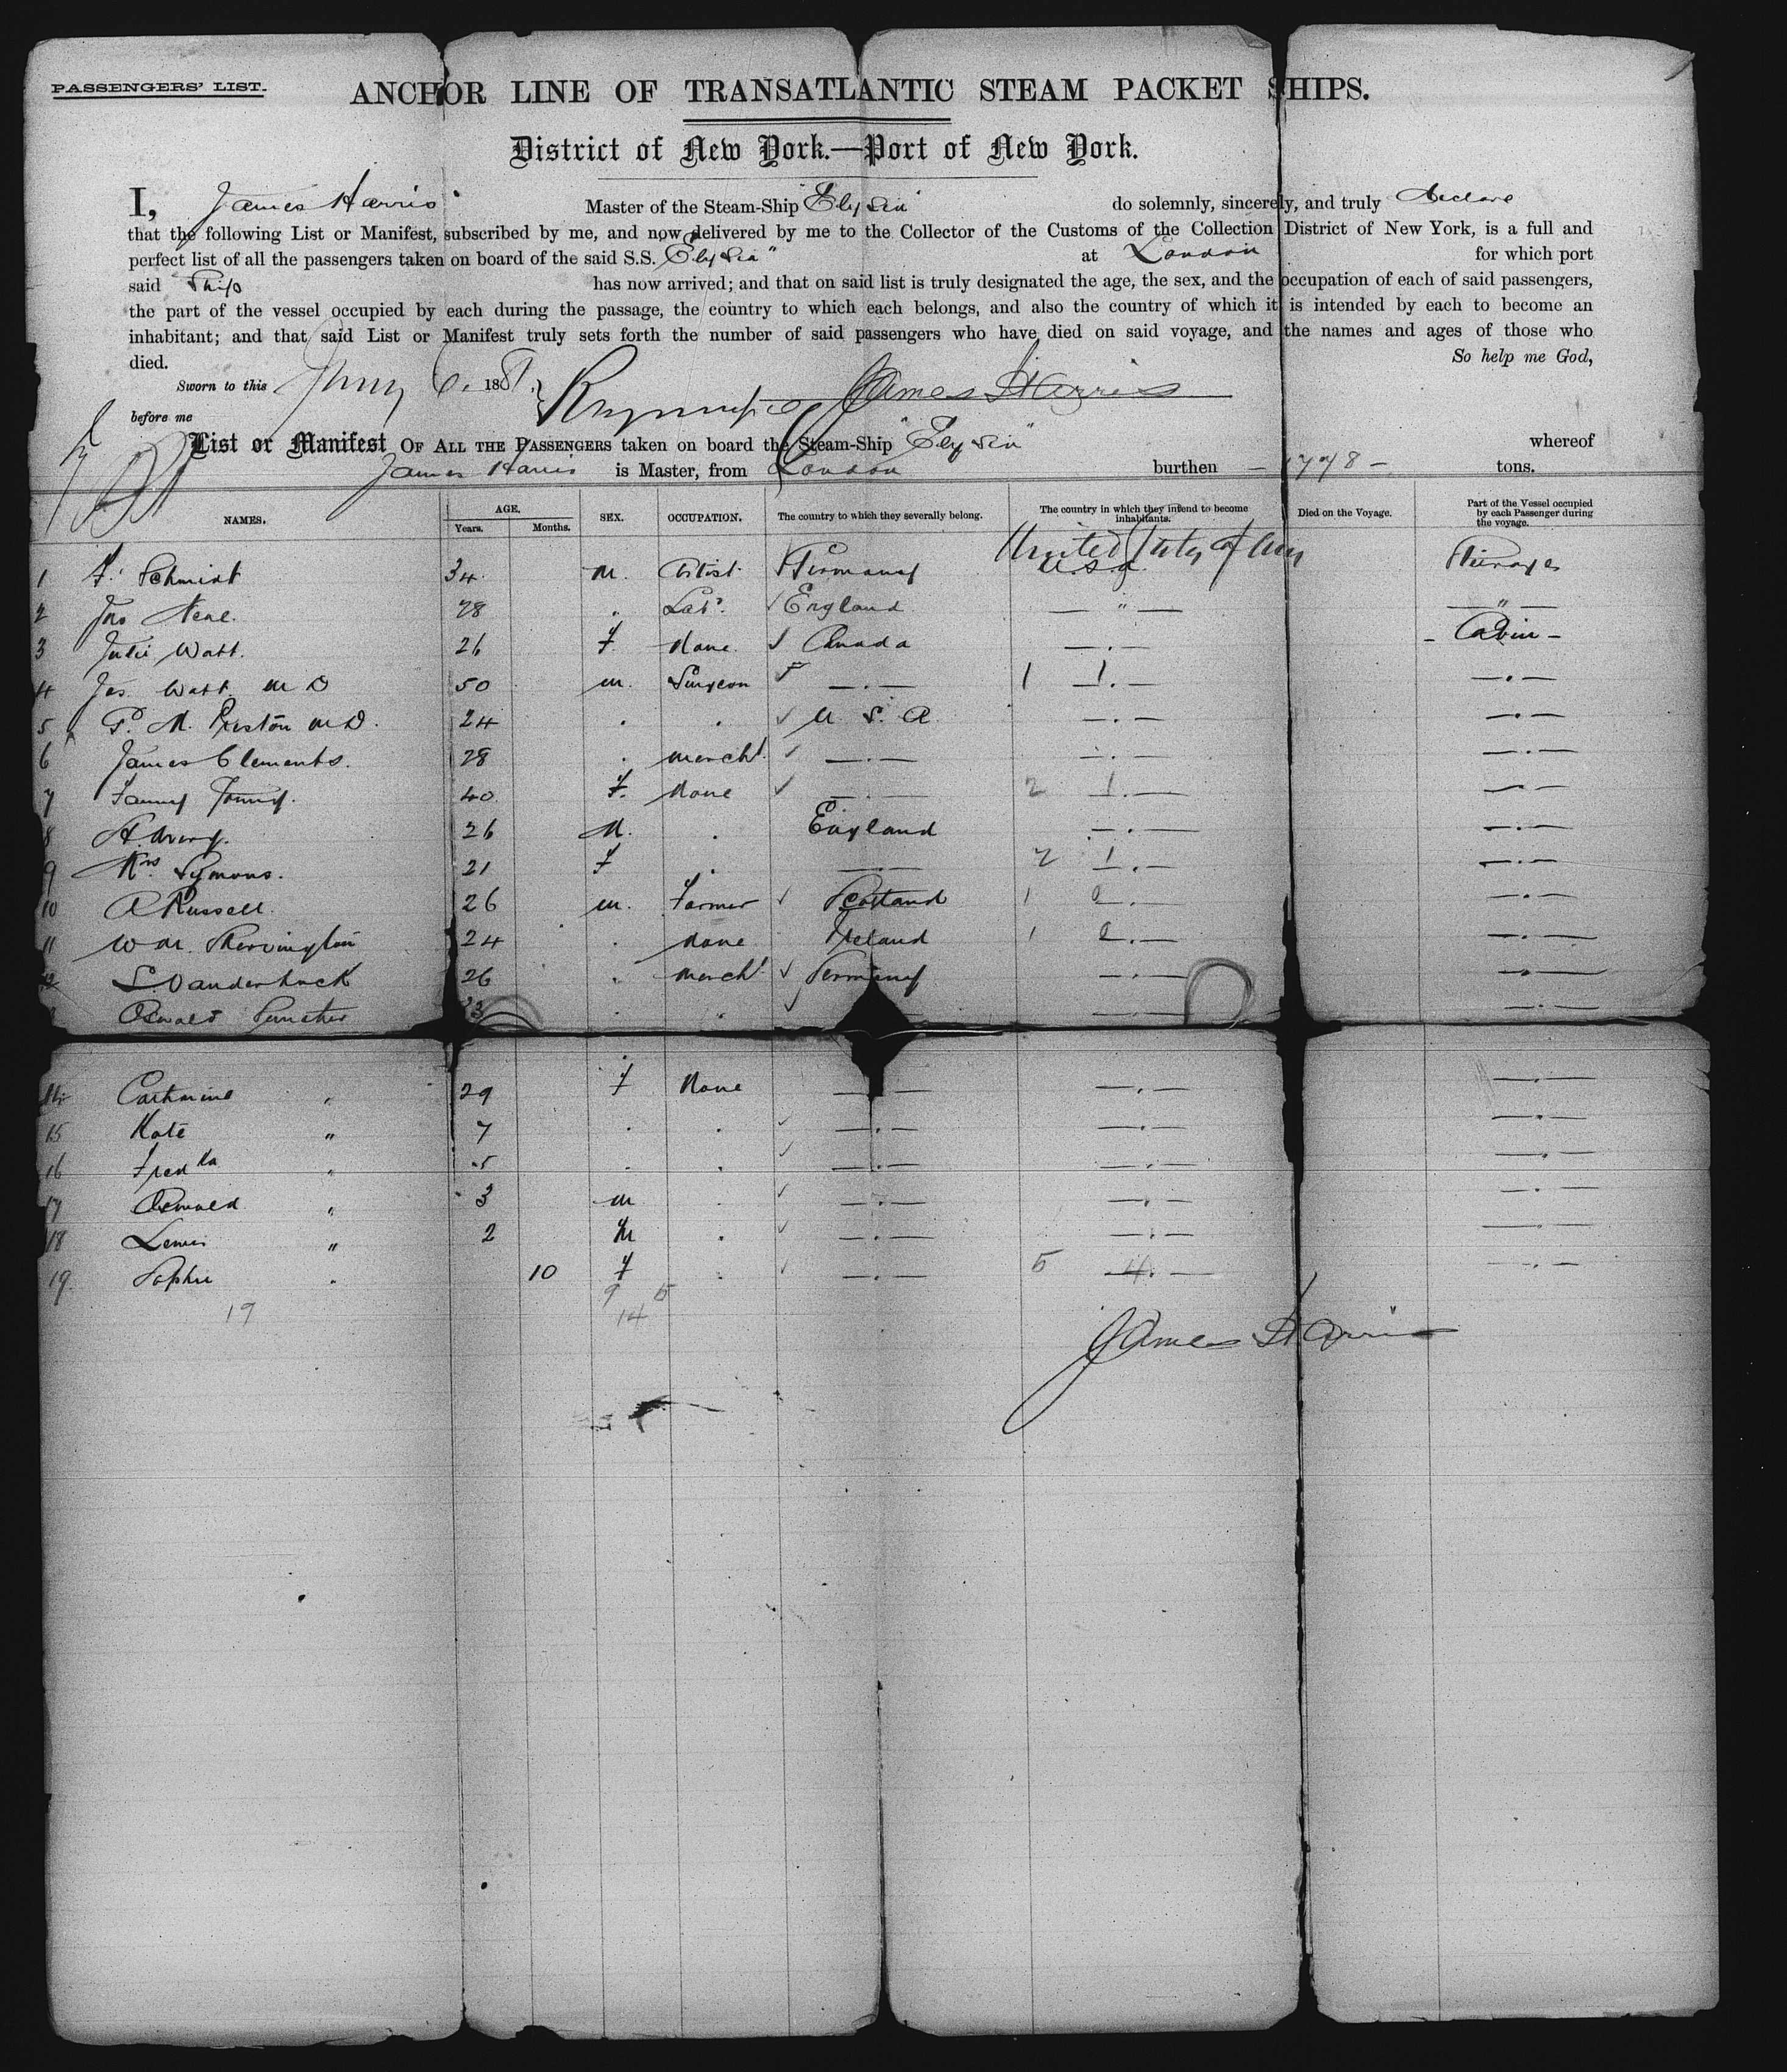 PASSENGERS' LIST.
ANCHOR LINE OF TRANSATLANTIC STEAM PACKET SHIPS.
District of New York.—Port of New York.
I, James Harris Master of the Steam-Ship "Elysia" do solemnly, sincerely, and truly declare
that the following List or Manifest, subscribed by me, and now delivered by me to the Collector of the Customs of the Collection District of New York, is a full and
perfect list of all the passengers taken on board of the said S.S. "Elysia" at London for which port
said Ship has now arrived; and that on said list is truly designated the age, the sex, and the occupation of each of said passengers,
the part of the vessel occupied by each during the passage, the country to which each belongs, and also the country of which it is intended by each to become an
inhabitant; and that said List or Manifest truly sets forth the number of said passengers who have died on said voyage, and the names and ages of those who
died. So help me God,
Sworn to this 6 1881 James Harris
before me
List or Manifest OF ALL THE PASSENGERS taken on board the Steam-Ship "Elysia" whereof
James Harris is Master, from London burthen — 1778 — tons.
NAMES. AGE. Years. Months. SEX. OCCUPATION. The country to which they severally belong. The country in which they intend to become inhabitants. Died on the Voyage. Part of the Vessel occupied by each Passenger during the voyage.
United States of Am
1 F. Schmidt 34 M. Artist Germany U.S.A. Steerage
2 Jno Neal 28 " Labr. England — " — — " —
3 Julie Watt. 26 F. None Canada — " — — Cabin —
4 Jas Watt M D 50 M. Surgeon — " — 1 1 — " — — " —
5 P. M. Preston M D. 24 " " U. S. A. — " — — " —
6 James Clements. 28 " Mercht — " — — " — — " —
7 Fanny 40 F. None — " — 2 1 — " — — " —
8 A. 26 M. " England — " — — " —
9 Mrs. Symons. 21 F " — " — 2 1 — " — — " —
10 A Russell. 26 M. Farmer Scotland 1 2 — " — — " —
11 W M. 24 " None Ireland 1 2 — " — — " —
12 S. Vanderhuck 26 " Mercht Germany — " — — " —
Oswald 33 " " — " — — " —
14 Catharine " 29 F None — " — — " — — " —
15 Kate " 7 " " — " — — " — — " —
16 Fredka " 5 " " — " — — " — — " —
17 Oswald " 3 M " — " — — " — — " —
18 Lewis " 2 M " — " — — " — — " —
19. Sophie " 10 F " — " — 5 4 — " — — " —
9 5
19 14
James Harris